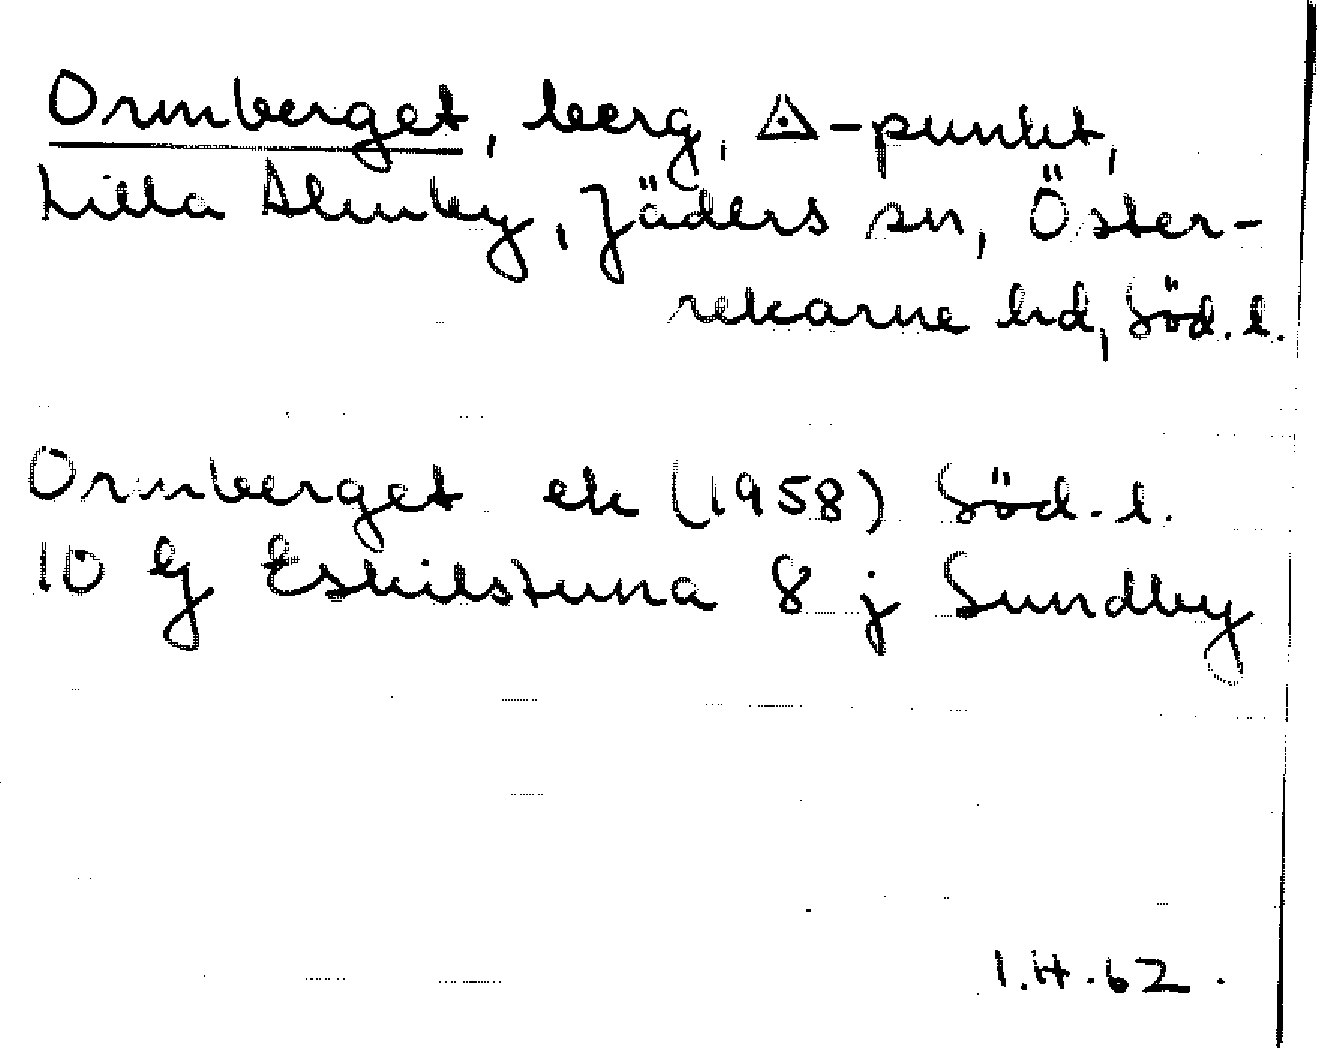 Ormberget, berg, △-punkt,
Lilla Almby, Jäders sn, Öster-
rekarne hd, Söd. l.
Ormberget ek (1958) Söd. l.
10 G Eskilstuna 8 j Sundby
I.H.62.